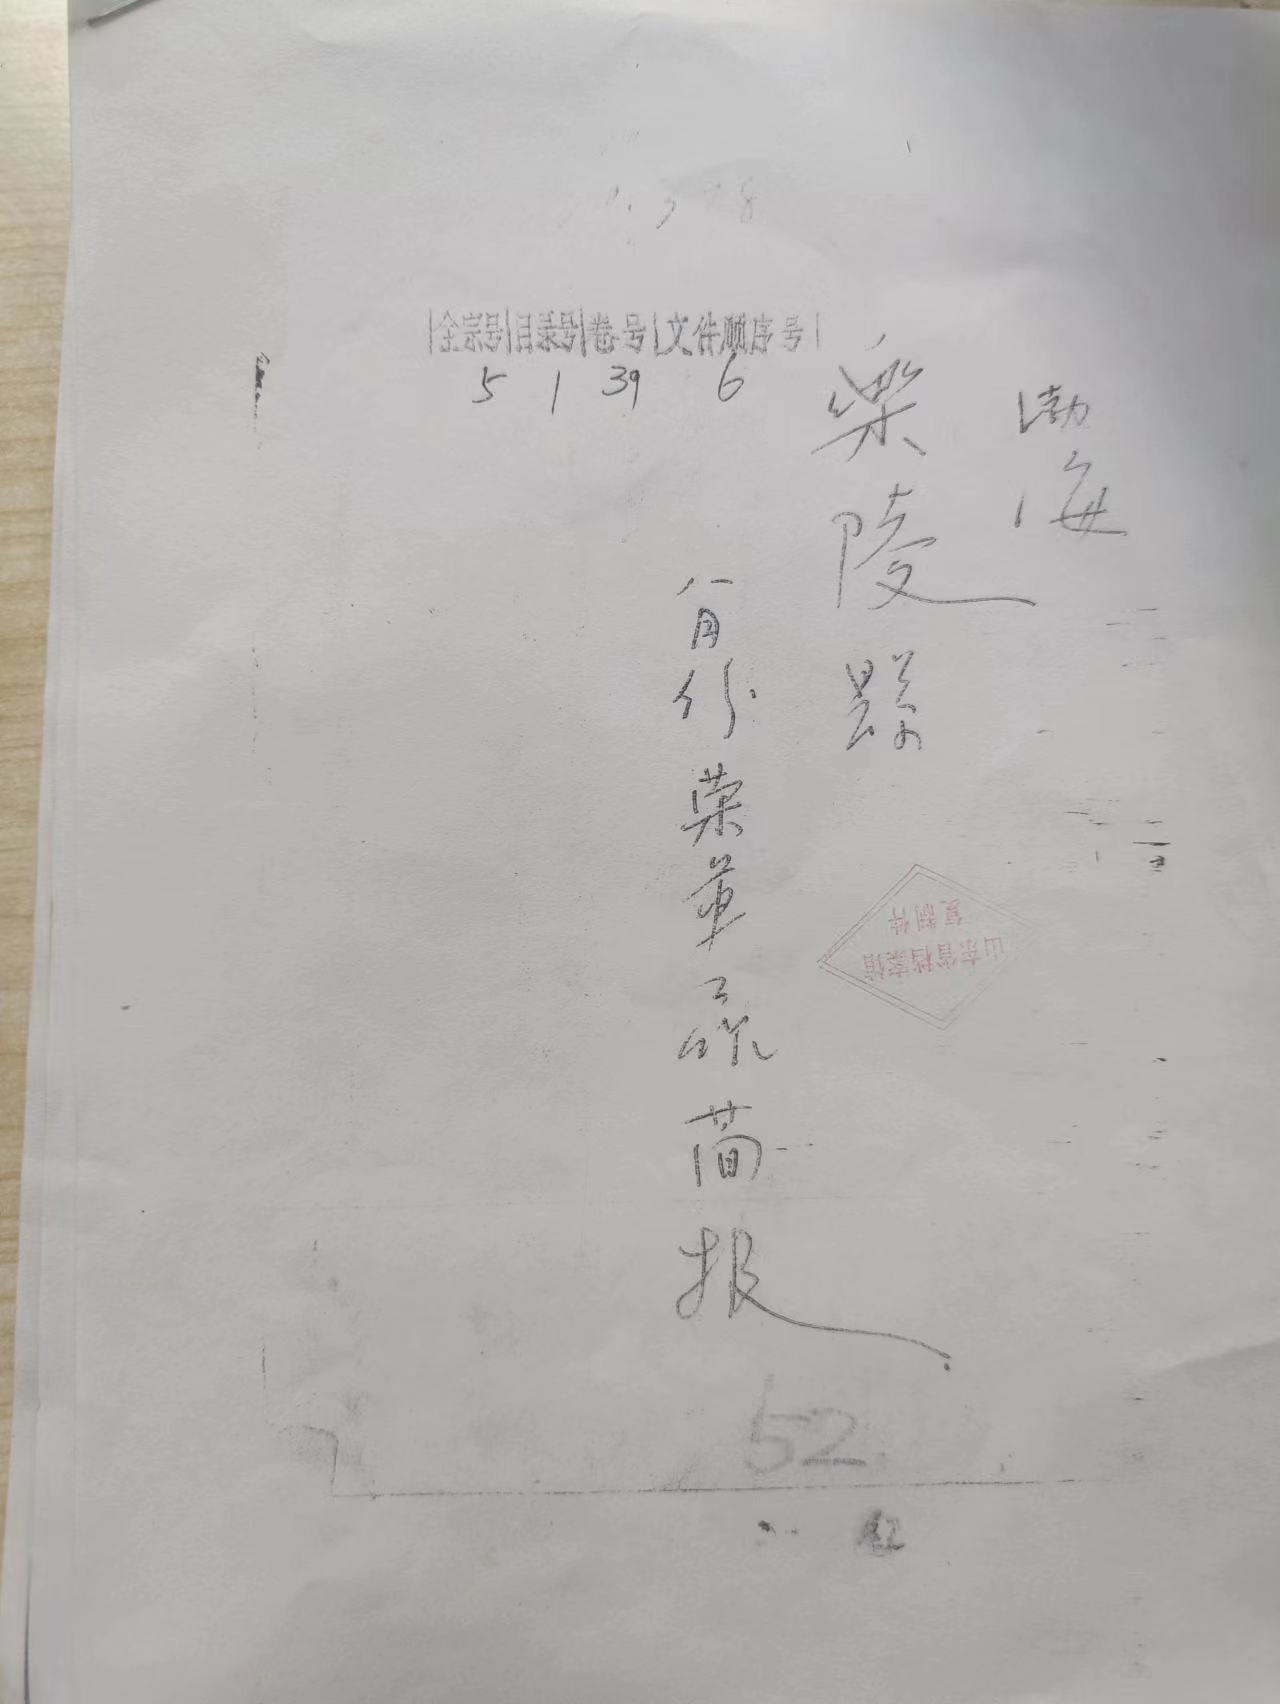 全宗号|目录号|卷号|文件顺序号
5 1 39 6
渤海
樂陵縣
八月份荣軍工作简报
山东省档案馆
复制件
52